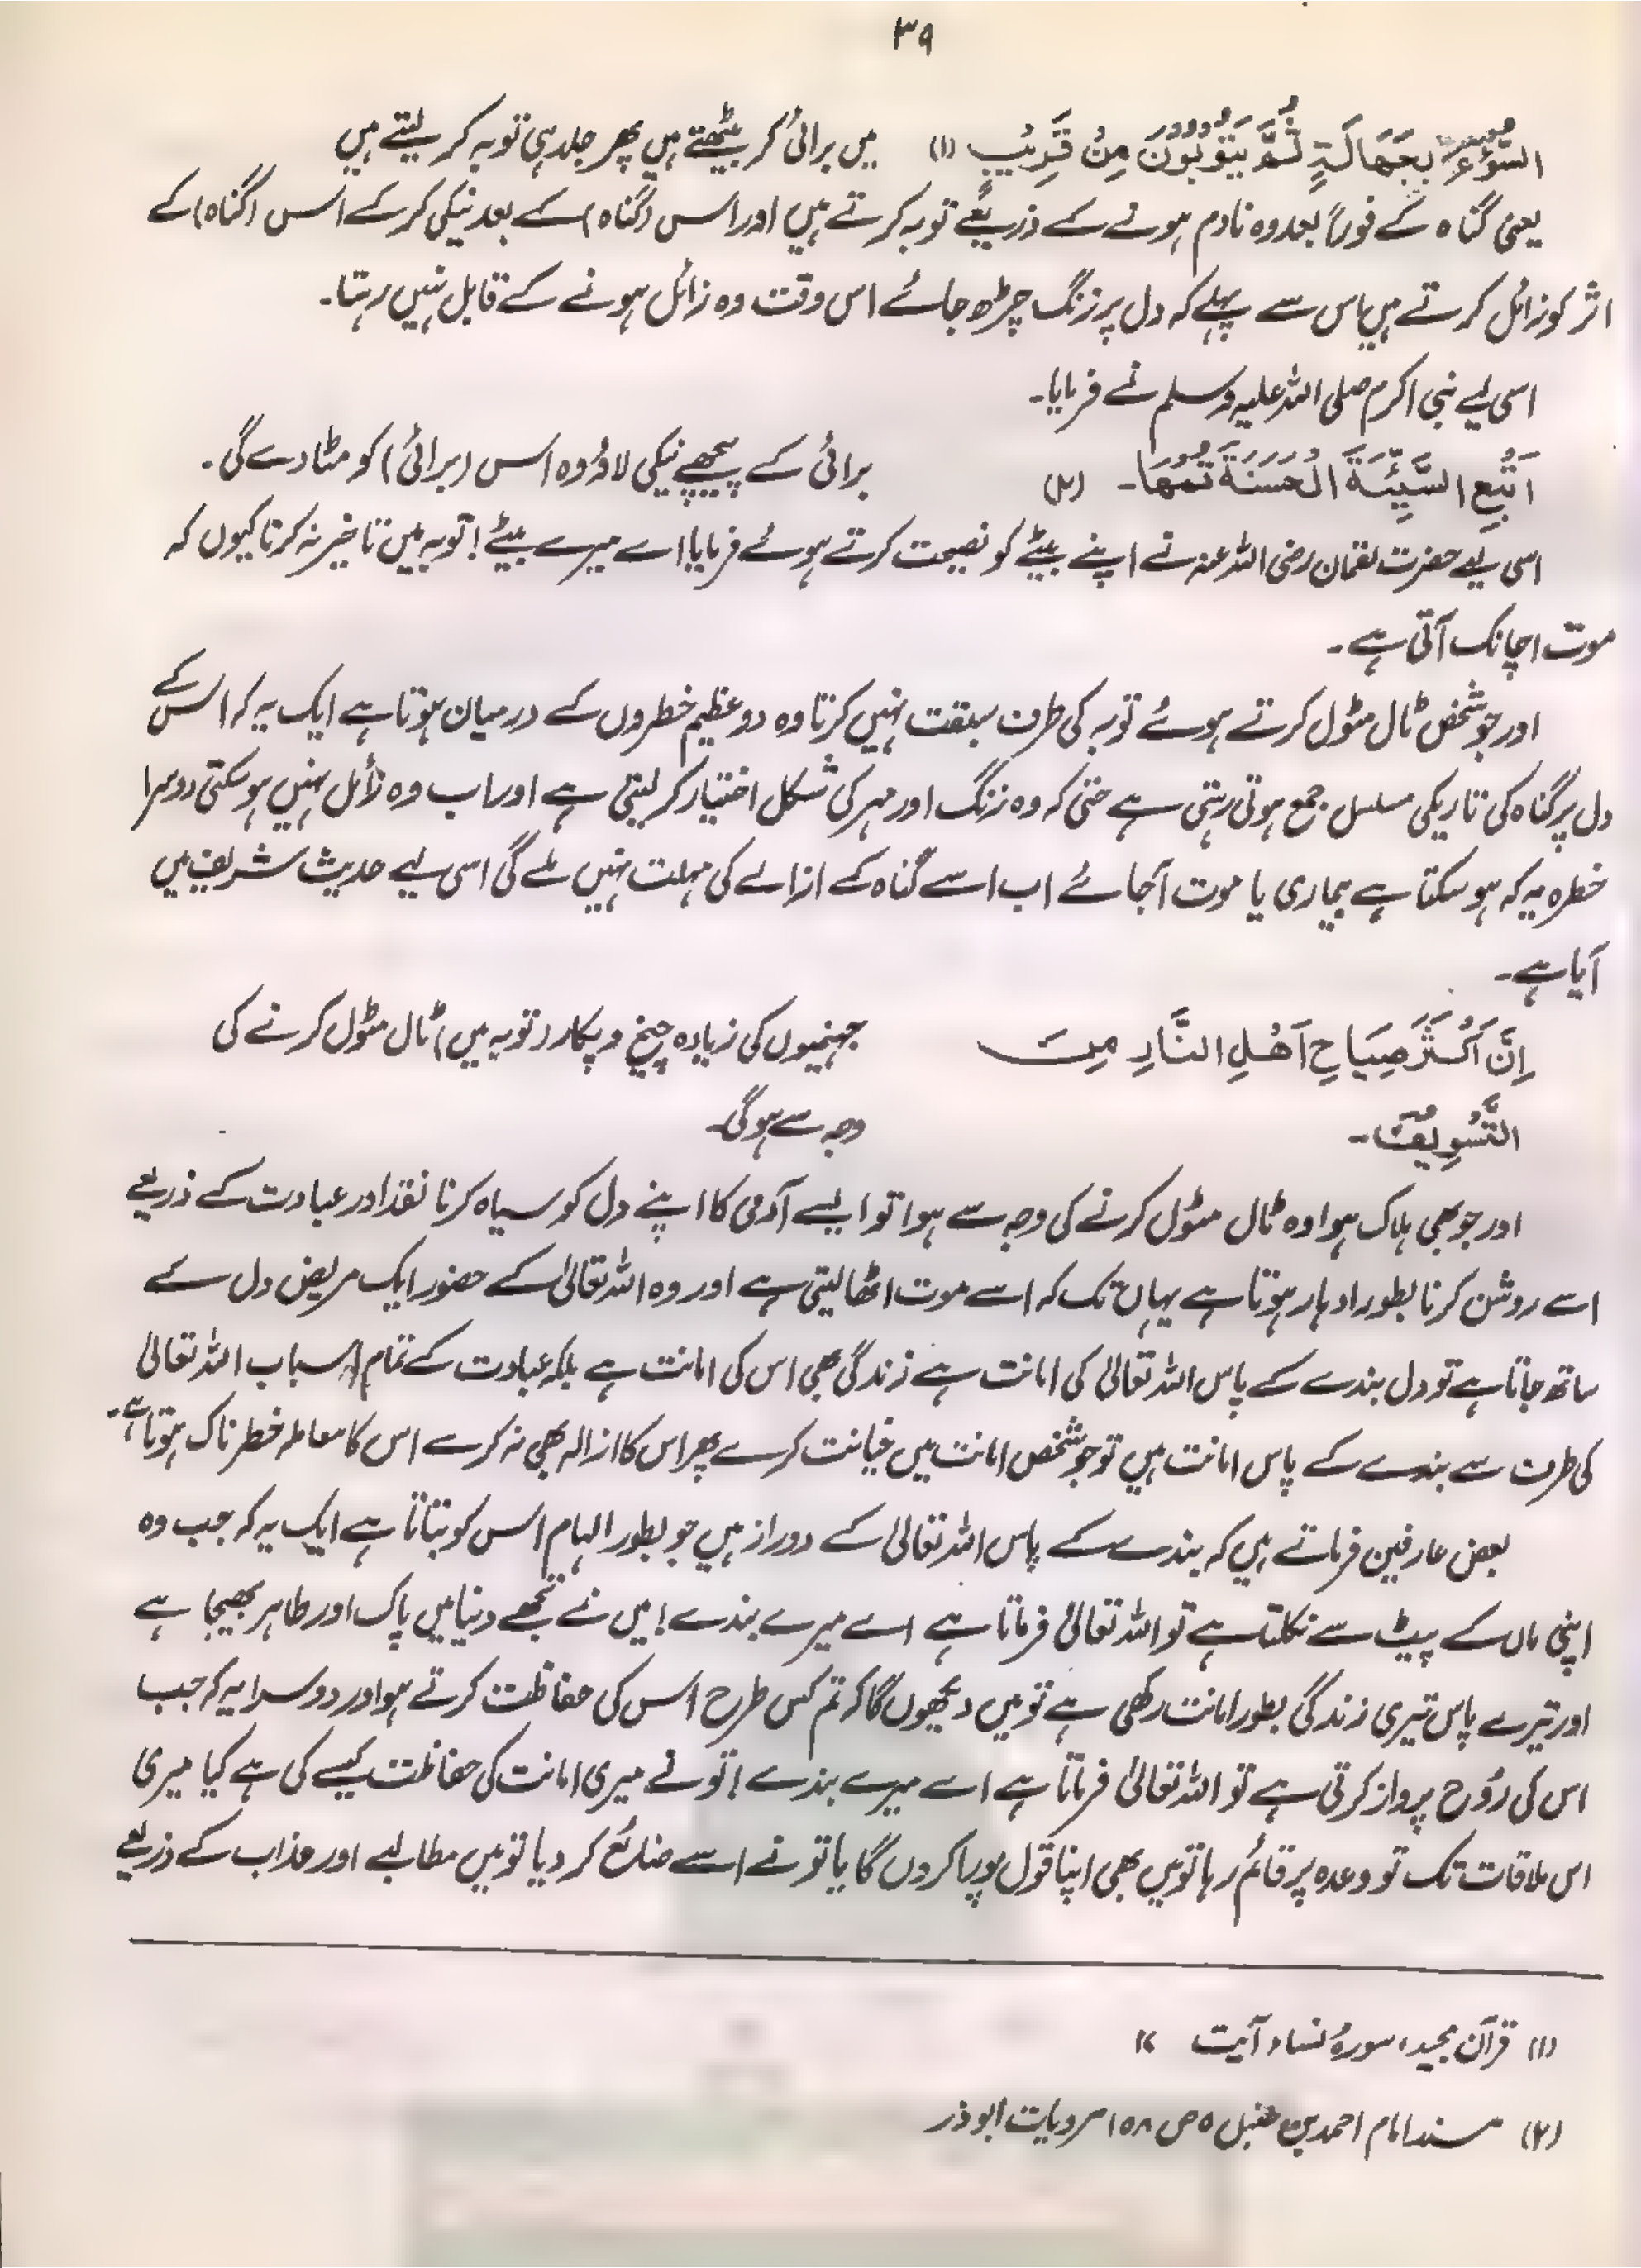 ۳۹
السُّوْءَ بِجَهَالَةٍ ثُمَّ يَتُوْبُوْنَ مِنْ قَرِيْبٍ (۱) میں برائی کر بیٹھتے ہیں پھر جلد ہی توبہ کر لیتے ہیں
یعنی گناہ کے فوراً بعد وہ نادم ہونے کے ذریعے توبہ کرتے ہیں اور اس (گناہ) کے بعد نیکی کرکے اس (گناہ) کے
اثر کو زائل کرتے ہیں اس سے پہلے کہ دل پر زنگ چڑھ جائے اس وقت وہ زائل ہونے کے قابل نہیں رہتا۔
اسی لیے نبی اکرم صلی اللہ علیہ وسلم نے فرمایا۔
اَتْبِعِ السَّيِّئَةَ الْحَسَنَةَ تَمْحُهَا۔ (۲) برائی کے پیچھے نیکی لاؤ وہ اس (برائی) کو مٹا دے گی۔
اسی لیے حضرت لقمان رضی اللہ عنہ نے اپنے بیٹے کو نصیحت کرتے ہوئے فرمایا اے میرے بیٹے! توبہ میں تاخیر نہ کرنا کیوں کہ
موت اچانک آتی ہے۔
اور جو شخص ٹال مٹول کرتے ہوئے توبہ کی طرف سبقت نہیں کرتا وہ دو عظیم خطروں کے درمیان ہوتا ہے ایک یہ کہ اس کے
دل پر گناہ کی تاریکی مسلسل جمع ہوتی رہتی ہے حتیٰ کہ وہ زنگ اور مہر کی شکل اختیار کر لیتی ہے اور اب وہ زائل نہیں ہو سکتی دوسرا
خطرہ یہ کہ ہو سکتا ہے بیماری یا موت آجائے اب اسے گناہ کے ازالے کی مہلت نہیں ملے گی اسی لیے حدیث شریف میں
آیا ہے۔
اِنَّ اَكْثَرَ صِيَاحِ اَهْلِ النَّارِ مِنَ جہنمیوں کی زیادہ چیخ و پکار (توبہ میں) ٹال مٹول کرنے کی
التَّسْوِيْفِ۔ وجہ سے ہوگی۔
اور جو بھی ہلاک ہوا وہ ٹال مٹول کرنے کی وجہ سے ہوا تو ایسے آدمی کا اپنے دل کو سیاہ کرنا نقد اور عبادت کے ذریعے
اسے روشن کرنا بطور ادہار ہوتا ہے یہاں تک کہ اسے موت اٹھا لیتی ہے اور وہ اللہ تعالیٰ کے حضور ایک مریض دل کے
ساتھ جاتا ہے تو دل بندے کے پاس اللہ تعالیٰ کی امانت ہے زندگی بھی اس کی امانت ہے بلکہ عبادت کے تمام اسباب اللہ تعالیٰ
کی طرف سے بندے کے پاس امانت ہیں تو جو شخص امانت میں خیانت کرے پھر اس کا ازالہ بھی نہ کرے اس کا معاملہ خطرناک ہوتا ہے۔
بعض عارفین فرماتے ہیں کہ بندے کے پاس اللہ تعالیٰ کے دو راز ہیں جو بطور الہام اس کو بتاتا ہے ایک یہ کہ جب وہ
اپنی ماں کے پیٹ سے نکلتا ہے تو اللہ تعالیٰ فرماتا ہے اے میرے بندے! میں نے تجھے دنیا میں پاک اور طاہر بھیجا ہے
اور تیرے پاس تیری زندگی بطور امانت رکھی ہے تو میں دیکھوں گا کہ تم کس طرح اس کی حفاظت کرتے ہو اور دوسرا یہ کہ جب
اس کی رُوح پرواز کرتی ہے تو اللہ تعالیٰ فرماتا ہے اے میرے بندے! تو نے میری امانت کی حفاظت کیسے کی ہے کیا میری
اس ملاقات تک تو وعدہ پر قائم رہا تو میں بھی اپنا قول پورا کروں گا یا تو نے اسے ضائع کر دیا تو میں مطالبے اور عذاب کے ذریعے
(۱) قرآن مجید، سورہ نساء آیت ۱۷
(۲) مسند امام احمد بن حنبل ۵ ص ۱۵۸ مرویات ابوذر